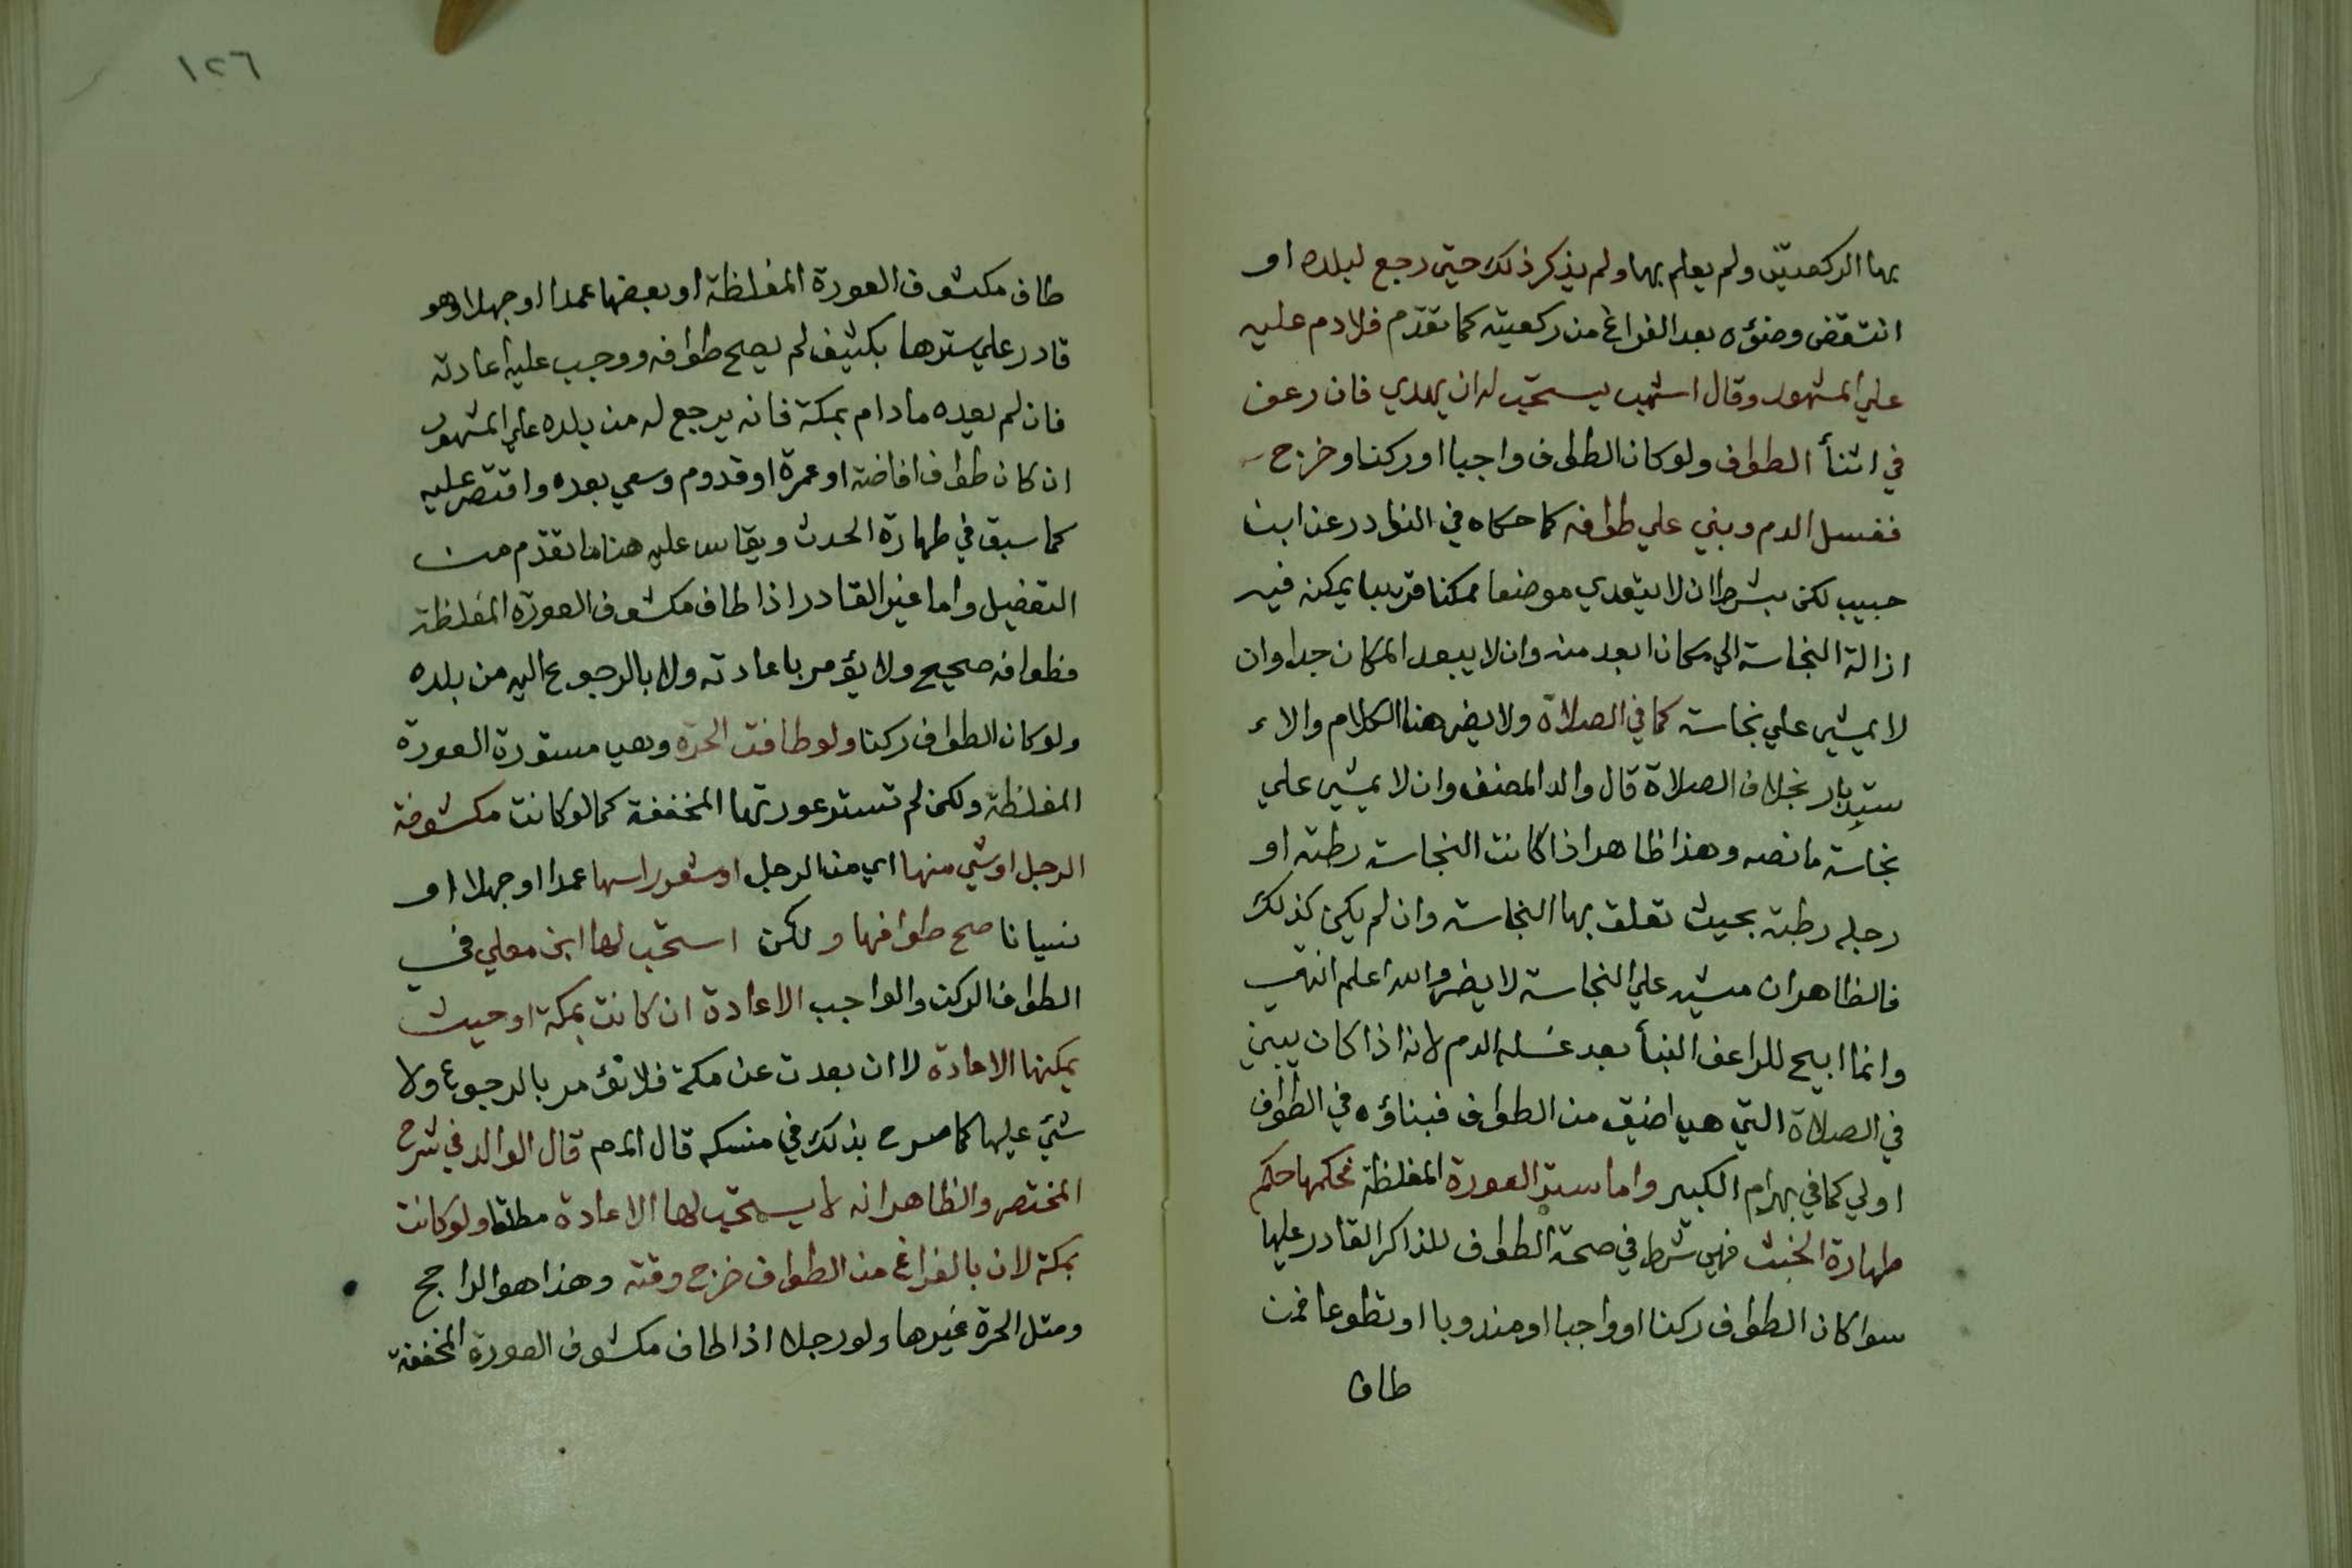 بها الركعتين ولم يعلم بها ولم يذكر ذلك حتي رجع لبلده او
انتقض وضؤه بعد الفراغ من ركعيته كما تقدم فلا دم عليه
علي المشهور وقال اشهب يستحب له ان يهدي فان رعف
في اثنأ الطواف ولو كان الطواف واجبا او ركنا وخرج
فغسل الدم وبني علي طوافه كما حكاه في النوادر عن ابن
حبيب لكن بشرط ان لا يتعدي موضعا ممكنا قريبا يمكنه فيه
ازالة النجاسة الي مكان ابعد منه وان لا يبعد المكان جدا وان
لا يمشي علي نجاسة كما في الصلاة ولا يضر هنا الكلام والا
ستدبار بخلاف الصلاة قال والد المصنف وان لا يمشي علي
نجاسة ما نصه وهذا ظاهر اذا كانت النجاسة رطبة او
رجله رطبة بحيث تعلق بها النجاسة وان لم يكن كذلك
فالظاهر ان مشيه علي النجاسة لا يضر والله اعلم انتهي
وانما ابيح للراعف البنأ بعد غسله الدم لانه اذا كان يبني
في الصلاة التي هي اضيق من الطواف فبناؤه في الطواف
اولي كما في بهرام الكبير واما ستر العورة المغلظة فحكمها حكم
طهارة الخبث فهي شرط في صحة الطواف للذاكر القادر عليها
سوا كان الطواف ركنا او واجبا او مندوبا او تطوعا فمن
طاف
١٢٦
طاف مكشوف العورة المغلظة او بعضها عمدا او جهلا وهو
قادر علي سترها بكثيف لم يصح طوافه ووجب عليه اعادته
فان لم يعده ما دام بمكة فانه يرجع له من بلده علي المشهور
ان كان طواف افاضة او عمرة او قدوم وسعي بعده واقتصر عليه
كما سبق في طهارة الحدث ويقاس عليه هنا ما تقدم من
التفضيل واما غير القادر اذا طاف مكشوف العورة المغلظة
فطوافه صحيح ولا يؤمر باعادته ولا بالرجوع اليه من بلده
ولو كان الطواف ركنا ولو طافت الحرة وهي مستورة العورة
المغلظة ولكن لم تستر عورتها المخففة كما لو كانت مكشوفة
الرجل او شي منها اي من الرجل او شعور راسها عمدا او جهلا او
نسيانا صح طوافها ولكن استحب لها ابن معلي في
الطواف الركن والواجب الاعادة ان كانت بمكة او حيث
يمكنها الاعادة لا ان بعدت عن مكة فلا تؤمر بالرجوع ولا
شيء عليها كما صرح بذلك في منسكه قال المم قال الوالد في شرح
المختصر والظاهر انه لا يستحب لها الاعادة مطلقا ولو كانت
بمكة لان بالفراغ من الطواف خرج وقته وهذا هو الراجح
ومثل الحرة غيرها ولو رجلا اذا طاف مكشوف العورة المخففة